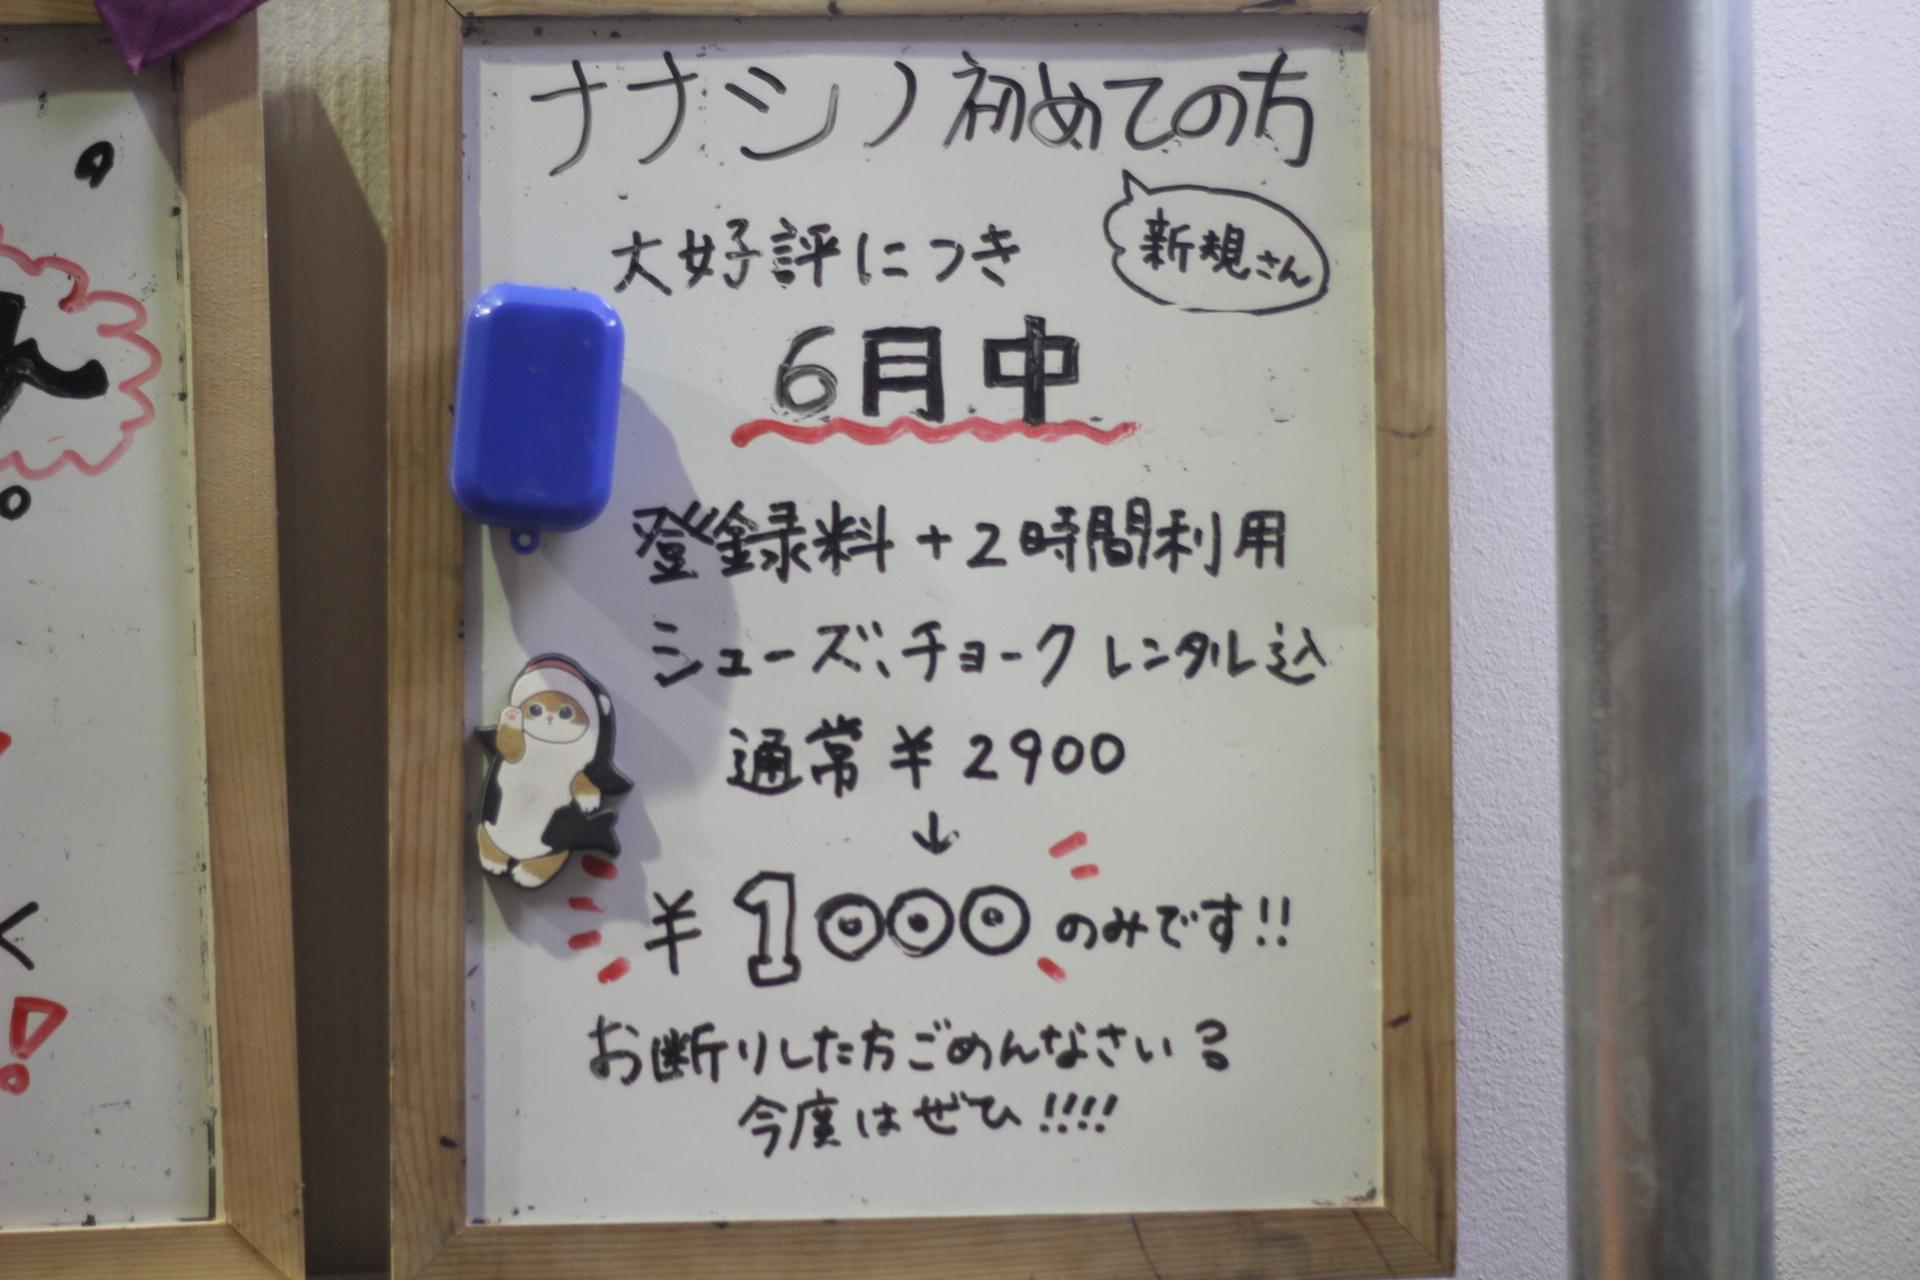 ナナシノ初めての方
新規さん
大好評につき
6月中
登録料+2時間利用
シューズ、チョークレンタル込
通常¥2900
↓
¥1000のみです!!
お断りした方ごめんなさい
今度はぜひ!!!!